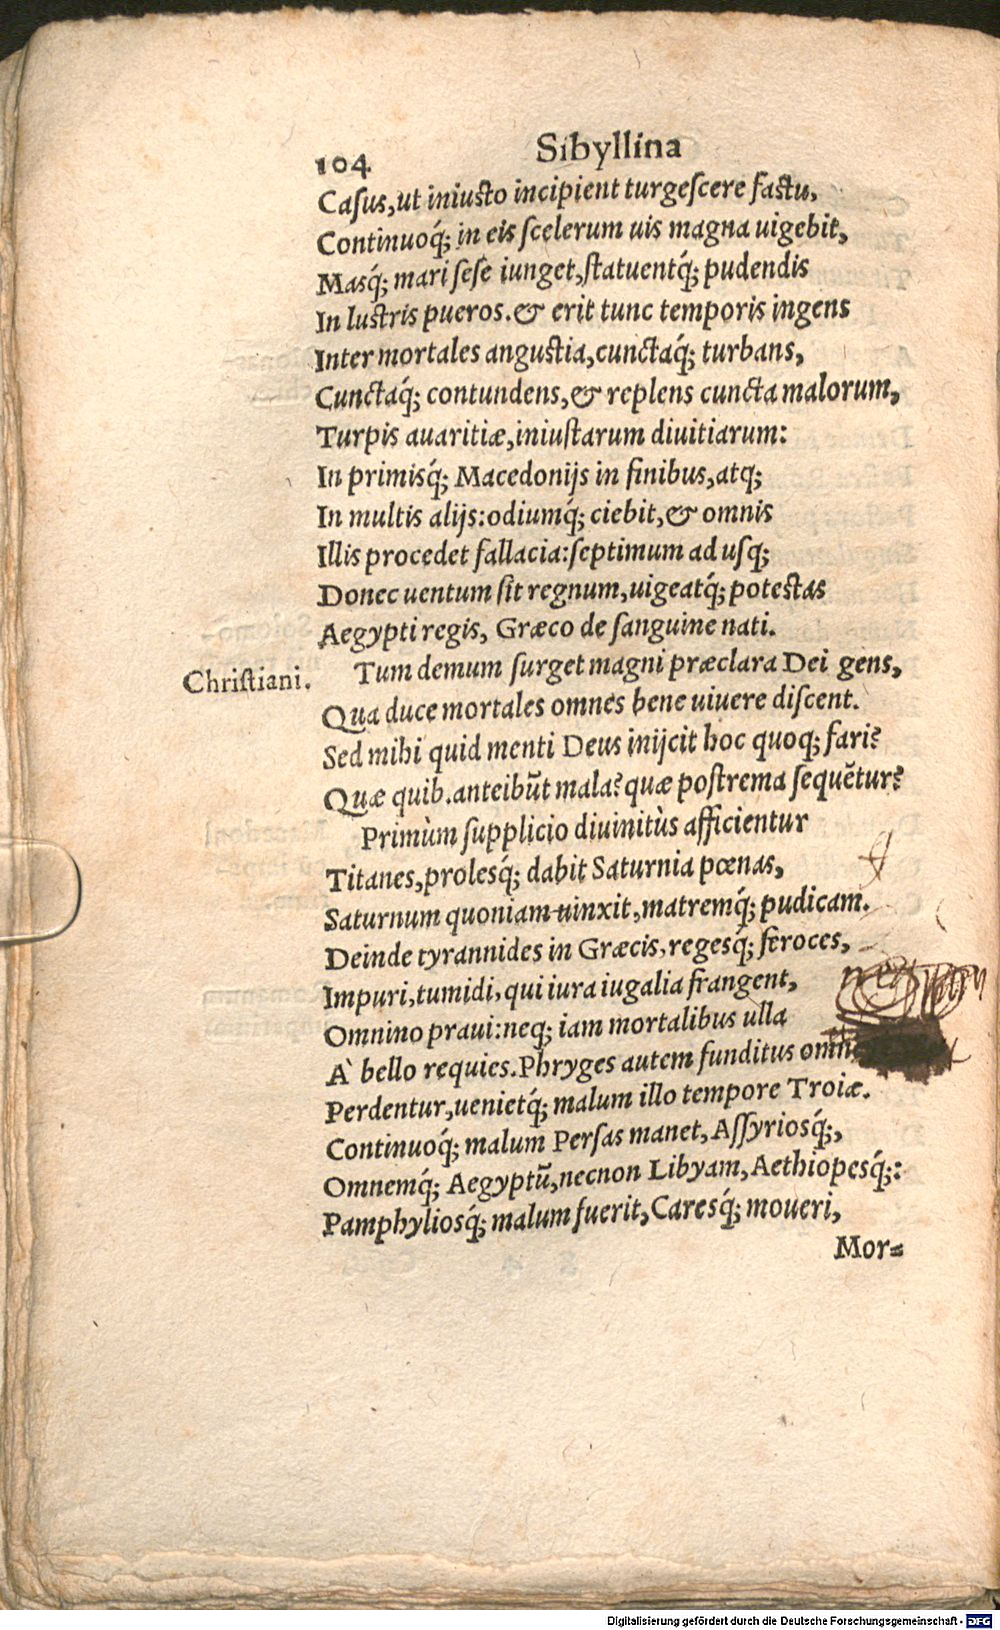 104 Sibyllina
Casus, ut iniusto incipient turgescere fastu,
Continuoq́; in eis scelerum uis magna uigebit,
Masq́; mari sese iunget, statuentq́; pudendis
In lustris pueros. & erit tunc temporis ingens
Inter mortales angustia, cunctaq́; turbans,
Cunctaq́; contundens, & replens cuncta malorum,
Turpis auaritiæ, iniustarum diuitiarum:
In primisq́; Macedonijs in finibus, atq;
In multis alijs: odiumq́; ciebit, & omnis
Illis procedet fallacia: septimum ad usq;
Donec uentum sit regnum, uigeatq́; potestas
Aegypti regis, Græco de sanguine nati.
Christiani. Tum demum surget magni præclara Dei gens,
Qua duce mortales omnes bene uiuere discent.
Sed mihi quid menti Deus inijcit hoc quoq; fari?
Quæ quib. anteibūt mala? quæ postrema sequētur?
Primùm supplicio diuinitùs afficientur
Titanes, prolesq́; dabit Saturnia pœnas,
Saturnum quoniam uinxit, matremq́; pudicam.
Deinde tyrannides in Græcis, regesq́; feroces,
Impuri, tumidi, qui iura iugalia frangent,
Omnino praui: neq; iam mortalibus ulla
À bello requies. Phryges autem funditus omne
Perdentur, uenietq́; malum illo tempore Troiæ.
Continuoq́; malum Persas manet, Assyriosq́;,
Omnemq́; Aegyptū, necnon Libyam, Aethiopesq́;:
Pamphyliosq́; malum fuerit, Caresq́; moueri,
Mor=
Digitalisierung gefördert durch die Deutsche Forschungsgemeinschaft - DFG